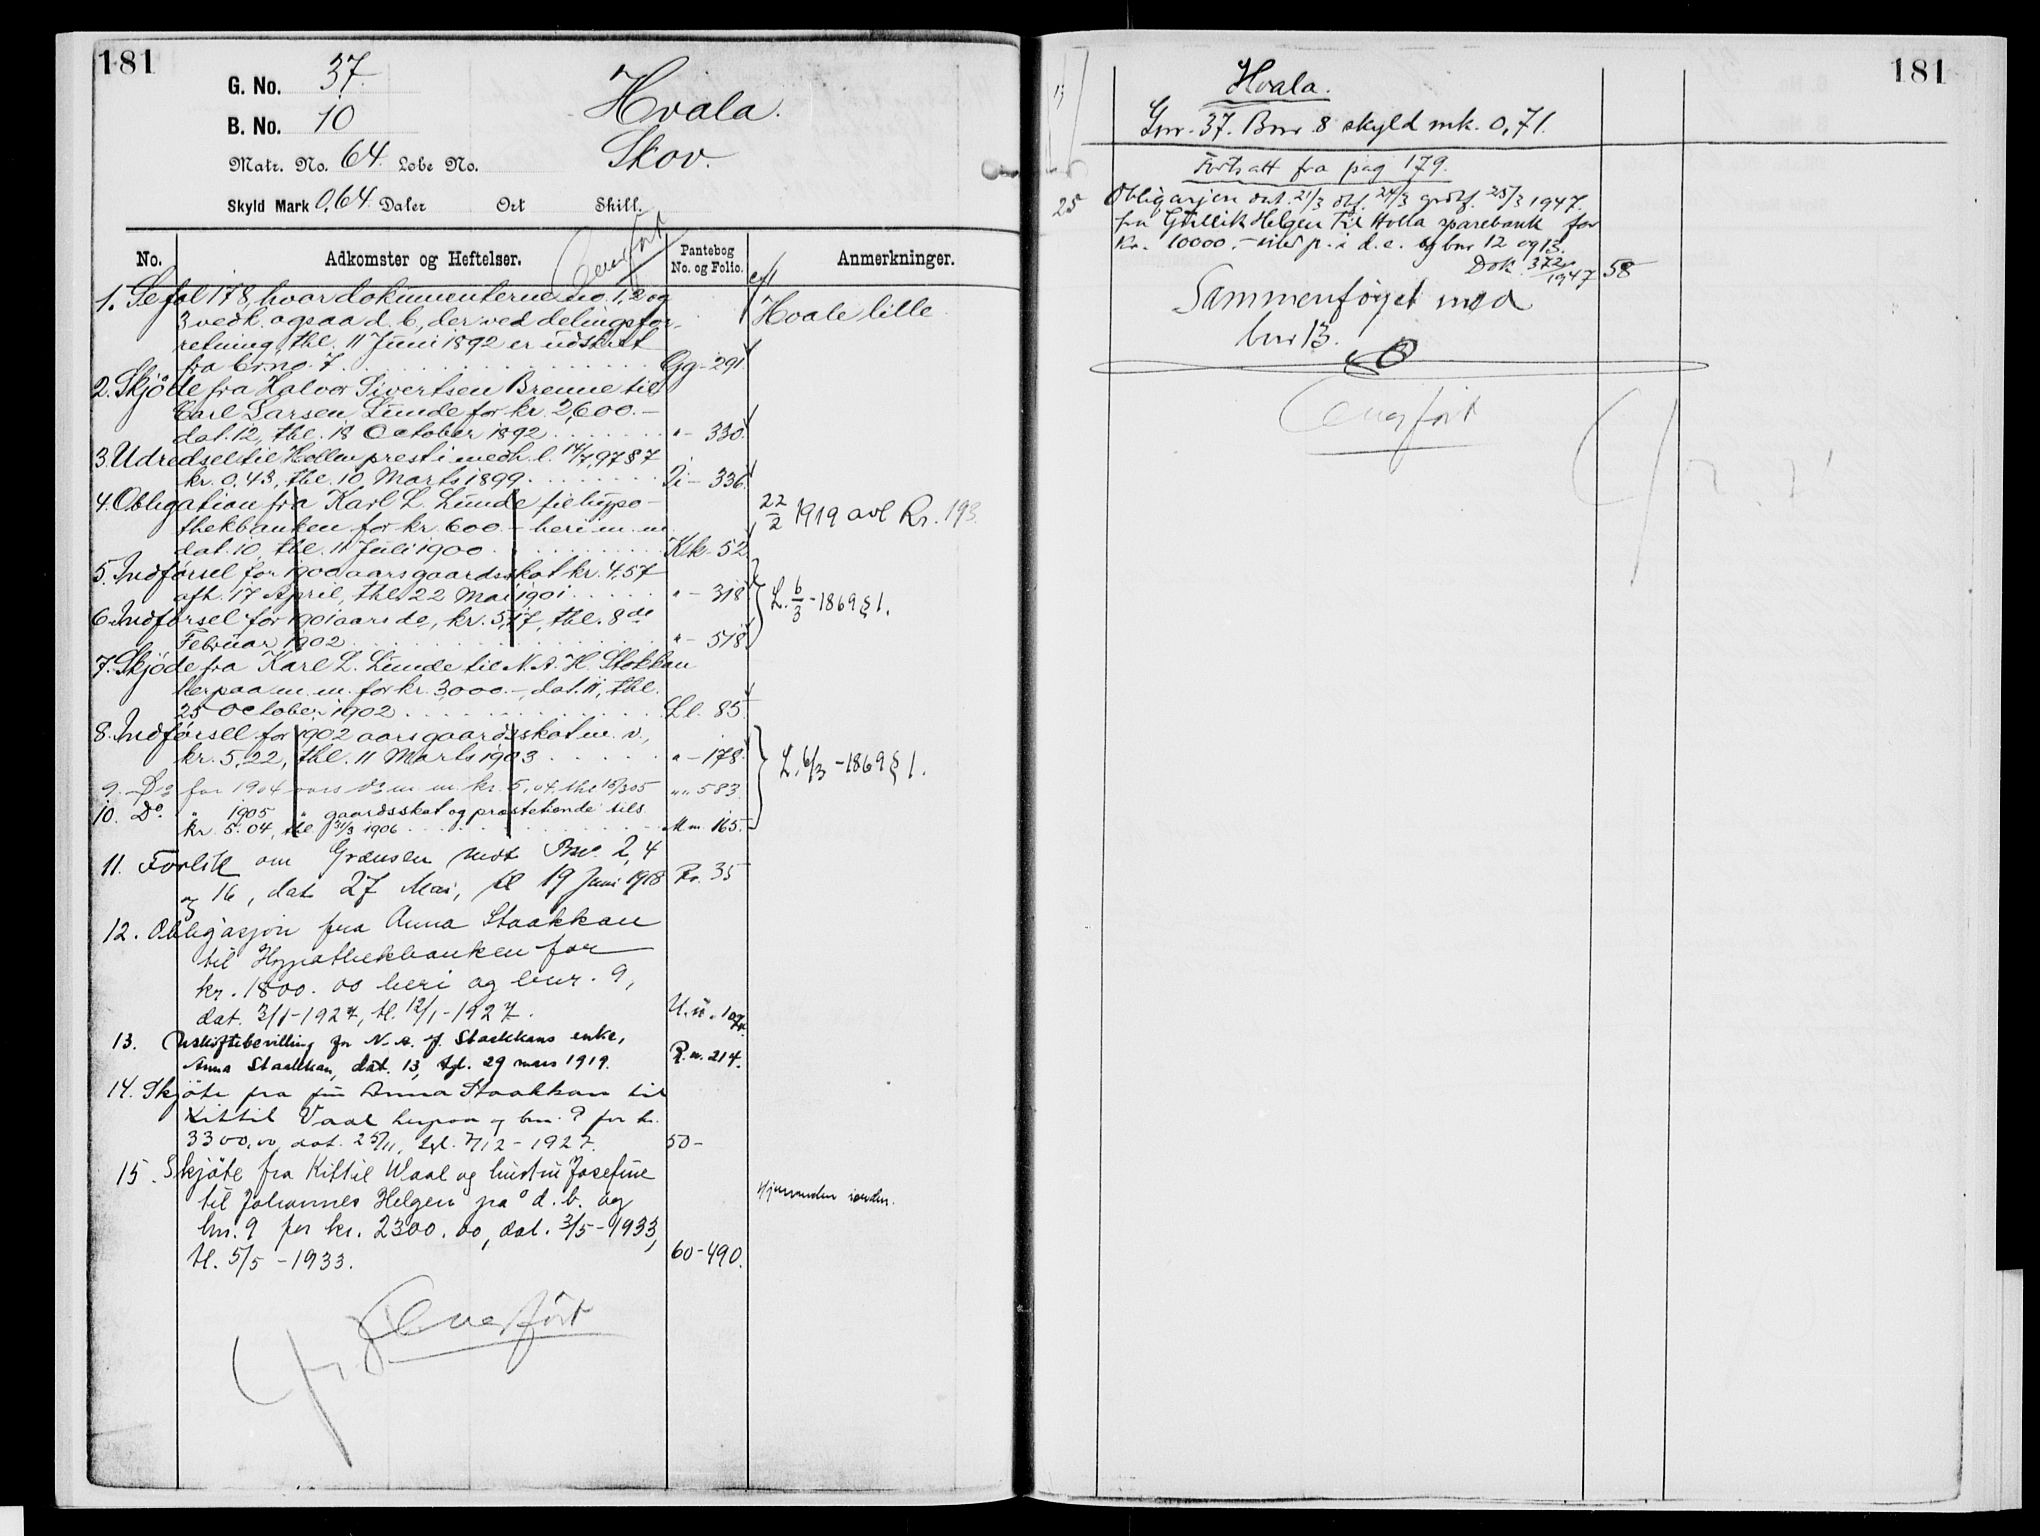 181
G. No. 37.
B. No. 10
Hvala.
Matr. No. 64. Løbe No.
Skov.
Skyld Mark 0,64 Daler Ort Skill.
No. Adkomster og Heftelser. Pantebog No. og Folio. Anmerkninger.
1. Se fol 178, hvor dokumenterne no. 1, 2 og
Hvale lille
3 vedk. ogsaa d. b., der ved delingsfor-
retning, thl. 11 Juni 1892 er udskilt
fra brno. 7. Gg - 291.
2. Skjöde fra Halvor Sivertsen Brenne til
Carl Larsen Lunde for kr. 2,600.-
dat. 12, thl. 18 October 1892 " - 330.
3. Udredsel til Hollen prest i medh. l. 14/7, 97 § 7
kr. 0,43, thl. 10 Marts 1899 Ii - 336.
4. Obligation fra Karl L. Lunde til hypo-
thekbanken for kr. 600.- heri m. m.
22/2 1919 avl Kr. 193.
dat. 10, thl. 11 Juli 1900 Kk. 52
5. Indförsel for 1900 aars gaardsskat kr. 4,57
afh. 17 April, thl. 22 Mai 1901 " - 318
L. 6/3 - 1869 § 1.
6. Indförsel for 1901 aars do, kr. 5,17, thl. 8de
Februar 1902 " - 518
7. Skjöde fra Karl L. Lunde til N. A. H. Stokkan
herpaa m. m. for kr. 3,000.-, dat. 11, thl.
25 October 1902 Ll. 85.
8. Indförsel for 1902 aars gaardsskat m. v.,
kr. 5,22, thl. 11 Marts 1903 " - 178.
L. 6/3 - 1869 § 1.
9. Do for 1904 aars do m. m. kr. 5,04, thl 15/3 05 " " 583
10. Do. " 1905 " gaardsskat og prestetiende tils.
kr. 5.04, thl 31/3 1906 Mm 165.
11. Forlik om Grænsen mot Bno. 2, 4
og 16, dat. 27 Mai, tl 19 Juni 1918 Rr. 35
12. Obligasjon fra Anna Staakkan
til Hypothekbanken for
kr. 1800.00 heri og bnr. 9,
dat. 3/1-1927, tl. 12/1-1927. U. u. 107.
13. Uskiftebevilling for N. A. H. Staakkans enke,
Anna Staakkan, dat. 13, tgl. 29 mars 1919. R. r. 214.
14. Skjöte fra fru Anna Staakkan til
Kittil Vaal herpaa og bnr. 9 for kr.
3300,00, dat. 25/11, tgl. 7/12-1927. 50 -
15. Skjöte fra Kittil Waal og hustru Josefine
til Johannes Helgen på d. b. og
bnr. 9 for kr. 2300.00, dat. 3/5-1933,
tl. 5/5-1933. 60-490.
181
Hvala.
Gnr. 37. Bnr 8 skyld mk. 0,71.
Fortsatt fra pag 179.
25 Obligasjon dat. 21/3 dgf. 24/3 grbf. 25/3 1947.
fra Gullik Helgen til Holla sparebank for
Kr. 10000.- p. i d. e. og bnr 12 og 13.
Dok. 372/1947 58
Sammenføyet med
bnr 13.